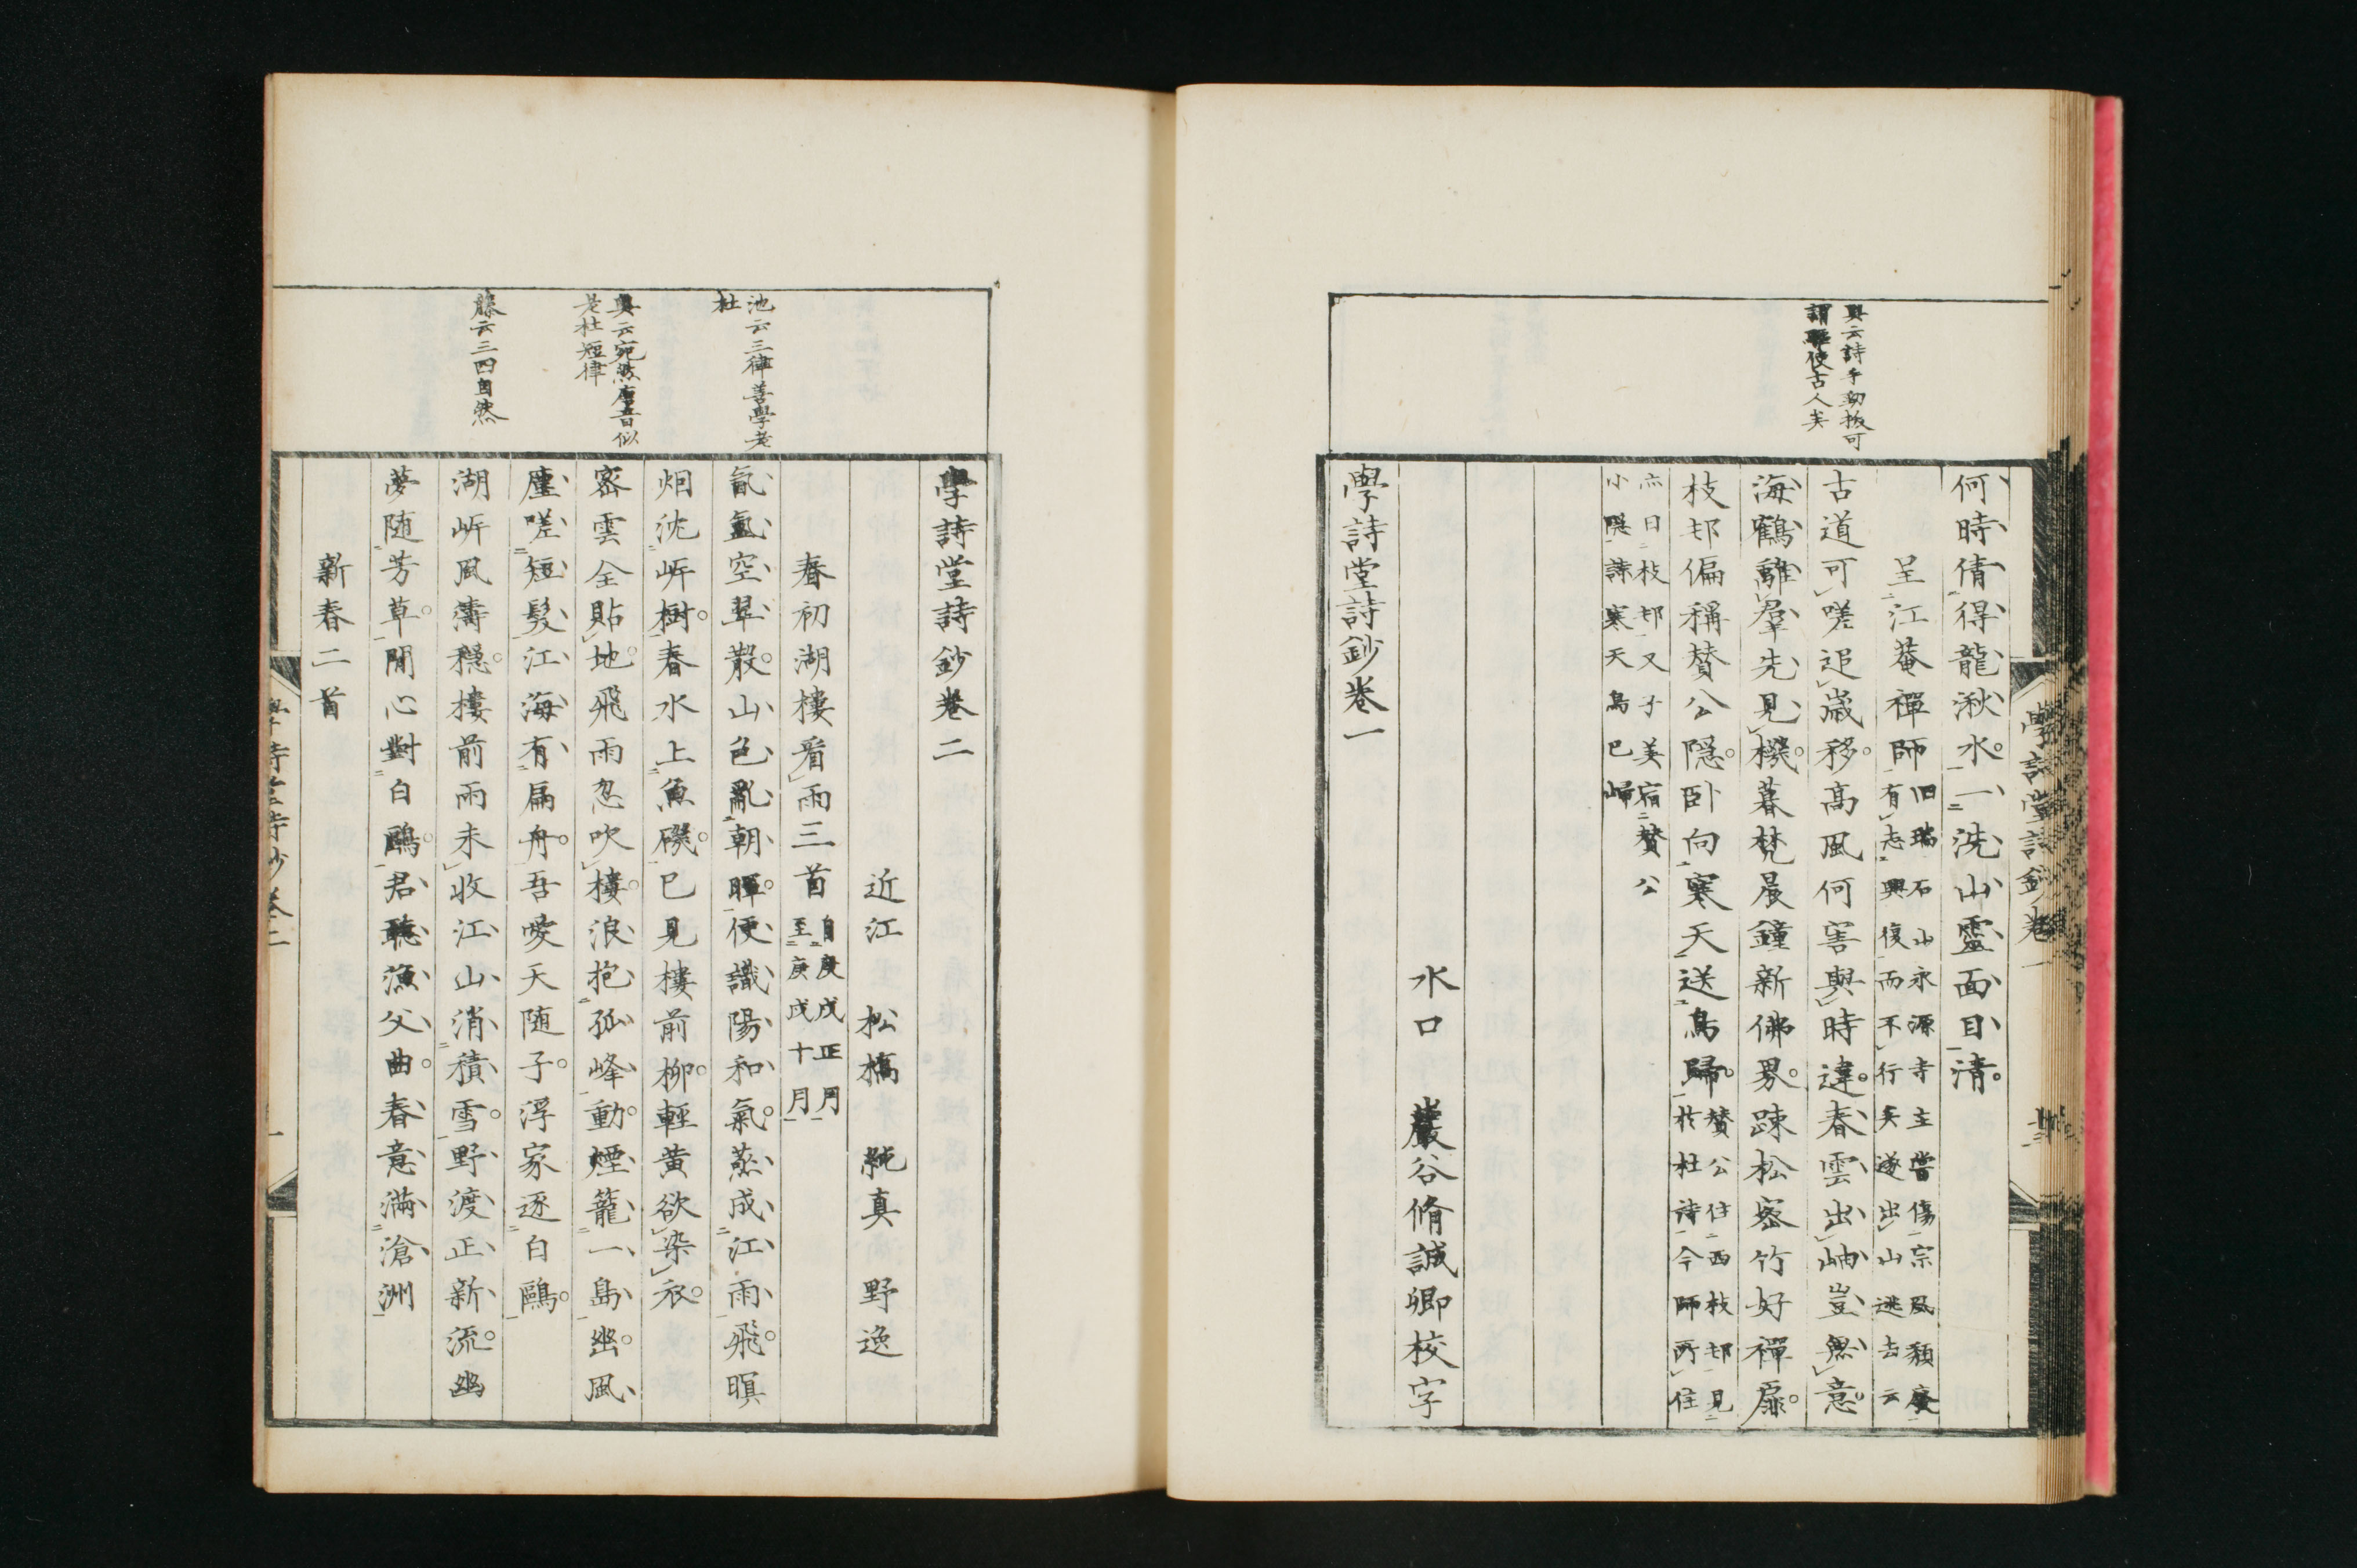 何時倩得龍湫水一洗山靈面目清
呈江菴禪師
旧瑞石山永源寺主嘗傷宗風頽廢
有志興復而不行矣遂出山逃去云
古道可嗟追歲移高風何害與時違春雲出岫豈無意
海鶴離羣先見機暮梵晨鐘新佛界踈松密竹好禪扉
枝邨偏稱賛公隱卧向寒天送鳥歸
賛公住西枝邨見
於杜詩今師所住
亦曰枝邨又子美宿賛公
小隱詩寒天鳥已歸
水口 巖谷脩誠卿校字
學詩堂詩鈔卷一
興云詩手勁拔可
謂驅使古人矣
學詩堂詩鈔卷一
學詩堂詩鈔卷二
近江 松橋 純真 野逸
春初湖樓看雨三首
自庚戌正月
至庚戌十月
氤氳空翠散山色亂朝暉便識陽和氣蒸成江雨飛暝
烟沈岸樹春水上魚磯已見樓前柳輕黄欲染衣
密雲全貼地飛雨忽吹樓浪抱孤峰動煙籠一島幽風
塵嗟短髮江海有扁舟吾愛天随子浮家逐白鷗
湖岸風濤穩樓前雨未收江山消積雪野渡正新流幽
夢随芳草閒心對白鷗君聽漁父曲春意滿滄洲
新春二首
池云三律善學老
杜
興云宛然唐音似
老杜短律
藤云三四自然
學詩堂詩鈔卷二
一